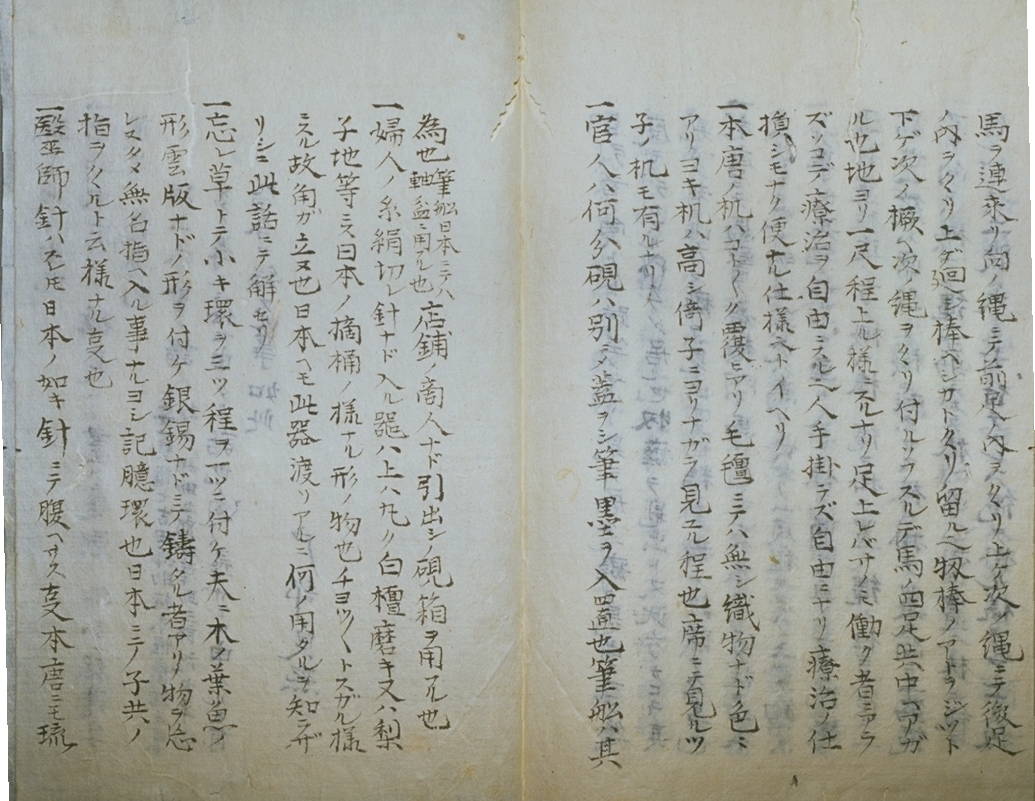 馬ヲ連來リ向ノ縄ニテ前足ノ内ヲクリ上ゲ次ノ縄ニテ後足
ノ内ヲクリ上ゲ廻シ棒ヘシカトクリ留ルヘ扨棒ノアトヲジツト
下ゲ次イ橛ヘ次ノ縄ヲクリ付ルソフスルデ馬四足共中ヘアガ
ル也地ヨリ一尺程上ル様ニスルナリ足上レバサノミ働ク者ニアラ
ズソコデ療治ヲ自由ニスルヘ人手掛ラズ自由ニヤリ療治ノ仕
損シモナク便ナル仕様ヘトイヘリ
一本唐ノ机ハコト〱ク覆ニアリ毛氊ニテハ無シ織物ナド色ミ
アリヨキ机ハ高シ倚子ニヨリナガラ見ユル程也席ニテ見ルツ
子ノ机モ有ルナリ
一官人ハ何分硯ハ別ニ〆蓋ヲシ筆墨ヲ入置也筆舩ハ其
為也筆舩日本ニテハ軸益ニ用フル也店鋪ノ商人ナド引出シノ硯箱ヲ用フル也
一婦人ノ糸絹切レ針ナド入ル器ハ上ハ九ク白檀磨キ又ハ梨
子地等ミス日本ノ摘桶ノ様ナル形ノ物也チヨツ〱トスガル様
ミスル故角ガ立ヌ也日本ヘモ此器渡リアルニ何ノ用タルヲ知ラザ
リシニ此話ニテ解セリ
一忘レ草トテ小キ環ヲ三ツ程ヲ一ツニ付ケ夫ニ木ノ葉魚ノ
形雲版ナドノ形ヲ付ケ銀錫ナドミテ鋳タル者アリ物ヲ忘
レヌタメ無名指ヘ入ル事ナルヨシ記臆環也日本ミテノ子共ノ
指ヲクヽルト云様ナル支也
一醫師針ハスレ𪜈日本ノ如キ針ミテ腹ヘサス支本唐ニモ琉